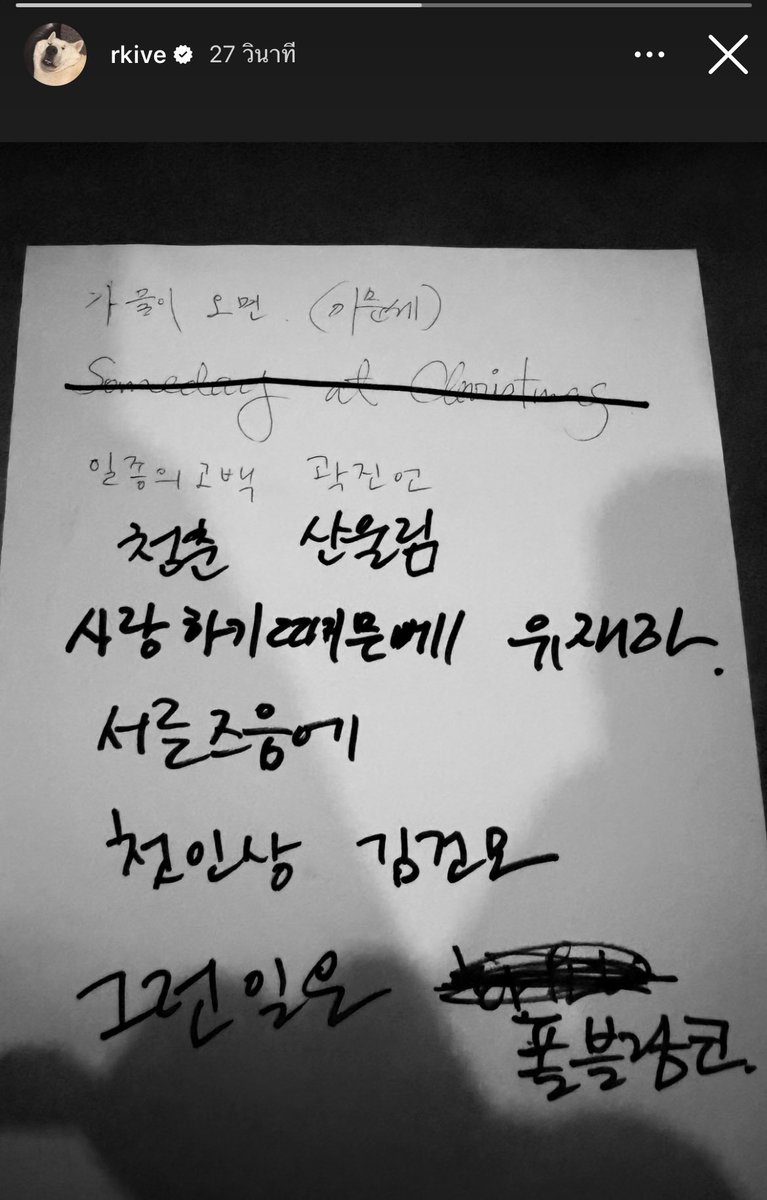 rkive 27 วินาที
가을이 오면. (이문세)
Someday at Christmas
일종의 고백 곽진언
청춘 산울림
사랑하기때문에 유재하.
서른즈음에
첫인상 김건모
그런일은
폴블랑코.